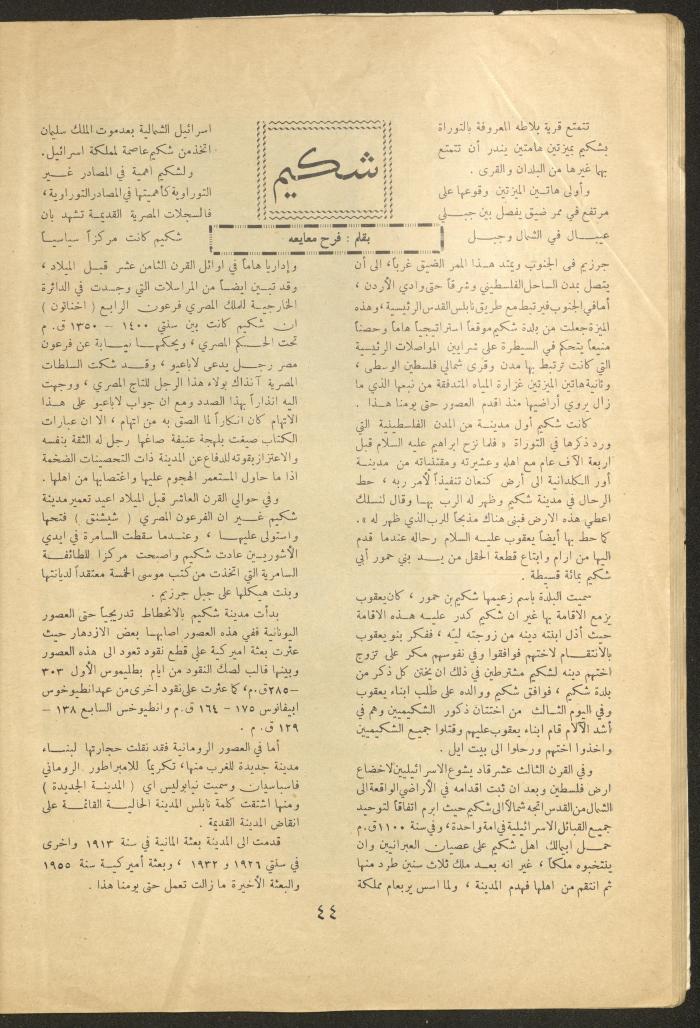 شكيم
بقلم : فرح معايعه
تتمتع قرية بلاطه المعروفة بالتوراة
بشكيم بميزتين هامتين يندر أن تتمتع
بها غيرها من البلدان والقرى .
وأولى هاتين الميزتين وقوعها على
مرتفع في ممر ضيق يفصل بين جبلي
عيبال في الشمال وجبل
جرزيم في الجنوب ويمتد هذا الممر الضيق غرباً، الى أن
يتصل بمدن الساحل الفلسطيني وشرقاً حتى وادي الأردن ،
أما في الجنوب فيرتبط مع طريق نابلس القدس الرئيسية ، وهذه
الميزة جعلت من بلدة شكيم موقعاً استراتيجياً هاماً وحصناً
منيعاً يتحكم في السيطرة على شرايين المواصلات الرئيسية
التي كانت ترتبط بها مدن وقرى شمالي فلسطين الوسطى ،
وثانية هاتين الميزتين غزارة المياه المتدفقة من نبعها الذي ما
زال يروي أراضيها منذ اقدم العصور حتى يومنا هذا .
كانت شكيم أول مدينة من المدن الفلسطينية التي
ورد ذكرها في التوراة « فلما نزح ابراهيم عليه السلام قبل
اربعة الآف عام مع اهله وعشيرته ومقتنياته من مدينة
أور الكلدانية الى أرض كنعان تنفيذاً لأمر ربه ، حط
الرحال في مدينة شكيم وظهر له الرب بها وقال لنسلك
اعطي هذه الارض فبنى هناك مذبحاً للرب الذي ظهر له ».
كما حط بها أيضاً يعقوب عليه السلام رحاله عندما قدم
اليها من ارام وابتاع قطعة الحقل من يد بني حمور أبي
شكيم بمائة قسيطة .
سميت البلدة باسم زعيمها شكيم بن حمور ، كان يعقوب
يزمع الاقامة بها غير ان شكيم كدر عليه هذه الاقامة
حيث أذل ابنته دينه من زوجته ليئه ، ففكر بنو يعقوب
بالانتقام لاختهم فوافقوا وفي نفوسهم مكر على تزوج
اختهم دينه لشكيم مشترطين في ذلك ان يختتن كل ذكر من
بلدة شكيم ، فوافق شكيم ووالده على طلب ابناء يعقوب
وفي اليوم الثالث من اختتان ذكور الشكيميين وهم في
أشد الآلام قام ابناء يعقوب عليهم وقتلوا جميع الشكيميين
واخذوا اختهم ورحلوا الى بيت ايل .
وفي القرن الثالث عشر قاد يشوع الاسرائيليين لاخضاع
ارض فلسطين وبعد ان ثبت اقدامه في الأراضي الواقعة الى
الشمال من القدس اتجه شمالاً الى شكيم حيث ابرم اتفاقاً لتوحيد
جميع القبائل الاسرائيلية في امة واحدة، وفي سنة ١١٠٠ ق.م
حمل ابيمالك اهل شكيم على عصيان العبرانيين وان
ينتخبوه ملكاً ، غير انه بعد ملك ثلاث سنين طرد منها
ثم انتقم من اهلها فهدم المدينة ، ولما اسس يربعام مملكة
اسرائيل الشمالية بعد موت الملك سليمان
اتخذ من شكيم عاصمة لمملكة اسرائيل.
ولشكيم اهمية في المصادر غير
التوراوية كأهميتها في المصادر التوراوية ،
فالسجلات المصرية القديمة تشهد بان
شكيم كانت مركزاً سياسياً
وإداريا هاماً في اوائل القرن الثامن عشر قبل الميلاد ،
وقد تبين ايضاً من المراسلات التي وجدت في الدائرة
الخارجية للملك المصري فرعون الرابع ( اخناتون )
ان شكيم كانت بين سنتي ١٤٠٠ – ١٣٥٠ ق. م
تحت الحكم المصري ، ويحكمها نيابة عن فرعون
مصر رجل يدعى لاباعيو ، وقد شكت السلطات
المصرية آنذاك بولاء هذا الرجل للتاج المصري ، ووجهت
اليه انذاراً بهذا الصدد ومع ان جواب لاباعيو على هذا
الاتهام كان انكاراً لما الصق به من اتهام ، الا ان عبارات
الكتاب صيغت بلهجة عنيفة صاغها رجل له الثقة بنفسه
والاعتزاز بقوته للدفاع عن المدينة ذات التحصينات الضخمة
اذا ما حاول المستعمر الهجوم عليها واغتصابها من اهلها .
وفي حوالي القرن العاشر قبل الميلاد اعيد تعمير مدينة
شكيم غير ان الفرعون المصري ( شيشنق ) فتحها
واستولى عليها ، وعندما سقطت السامرة في ايدي
الأشوريين عادت شكيم واصبحت مركزا للطائفة
السامرية التي اتخذت من كتب موسى الخمسة معتقداً لديانتها
وبنت هيكلها على جبل جرزيم .
بدأت مدينة شكيم بالانحطاط تدريجياً حتى العصور
اليونانية ففي هذه العصور اصابها بعض الازدهار حيث
عثرت بعثة اميركية على قطع نقود تعود الى هذه العصور
وبينها قالب لصك النقود من ايام بطليموس الأول ٣٠٣
–٢٨٥ق.م، كما عثرت على نقود اخرى من عهد انطيوخوس
ابيفانوس ١٧٥ – ١٦٤ ق.م وانطيوخس السابع ١٣٨ –
١٢٩ ق . م .
أما في العصور الرومانية فقد نقلت حجارتها لبناء
مدينة جديدة للغرب منها، تكريماً للامبراطور الروماني
فاسباسيان وسميت نيابوليس اي ( المدينة الجديدة )
ومنها اشتقت كلمة نابلس المدينة الحالية القائمة على
انقاض المدينة القديمة .
قدمت الى المدينة بعثة المانية في سنة ١٩١٣ واخرى
في سنتي ١٩٢٦ و ١٩٣٢ ، وبعثة أميركية سنة ١٩٥٥
والبعثة الأخيرة ما زالت تعمل حتى يومنا هذا .
٤٤